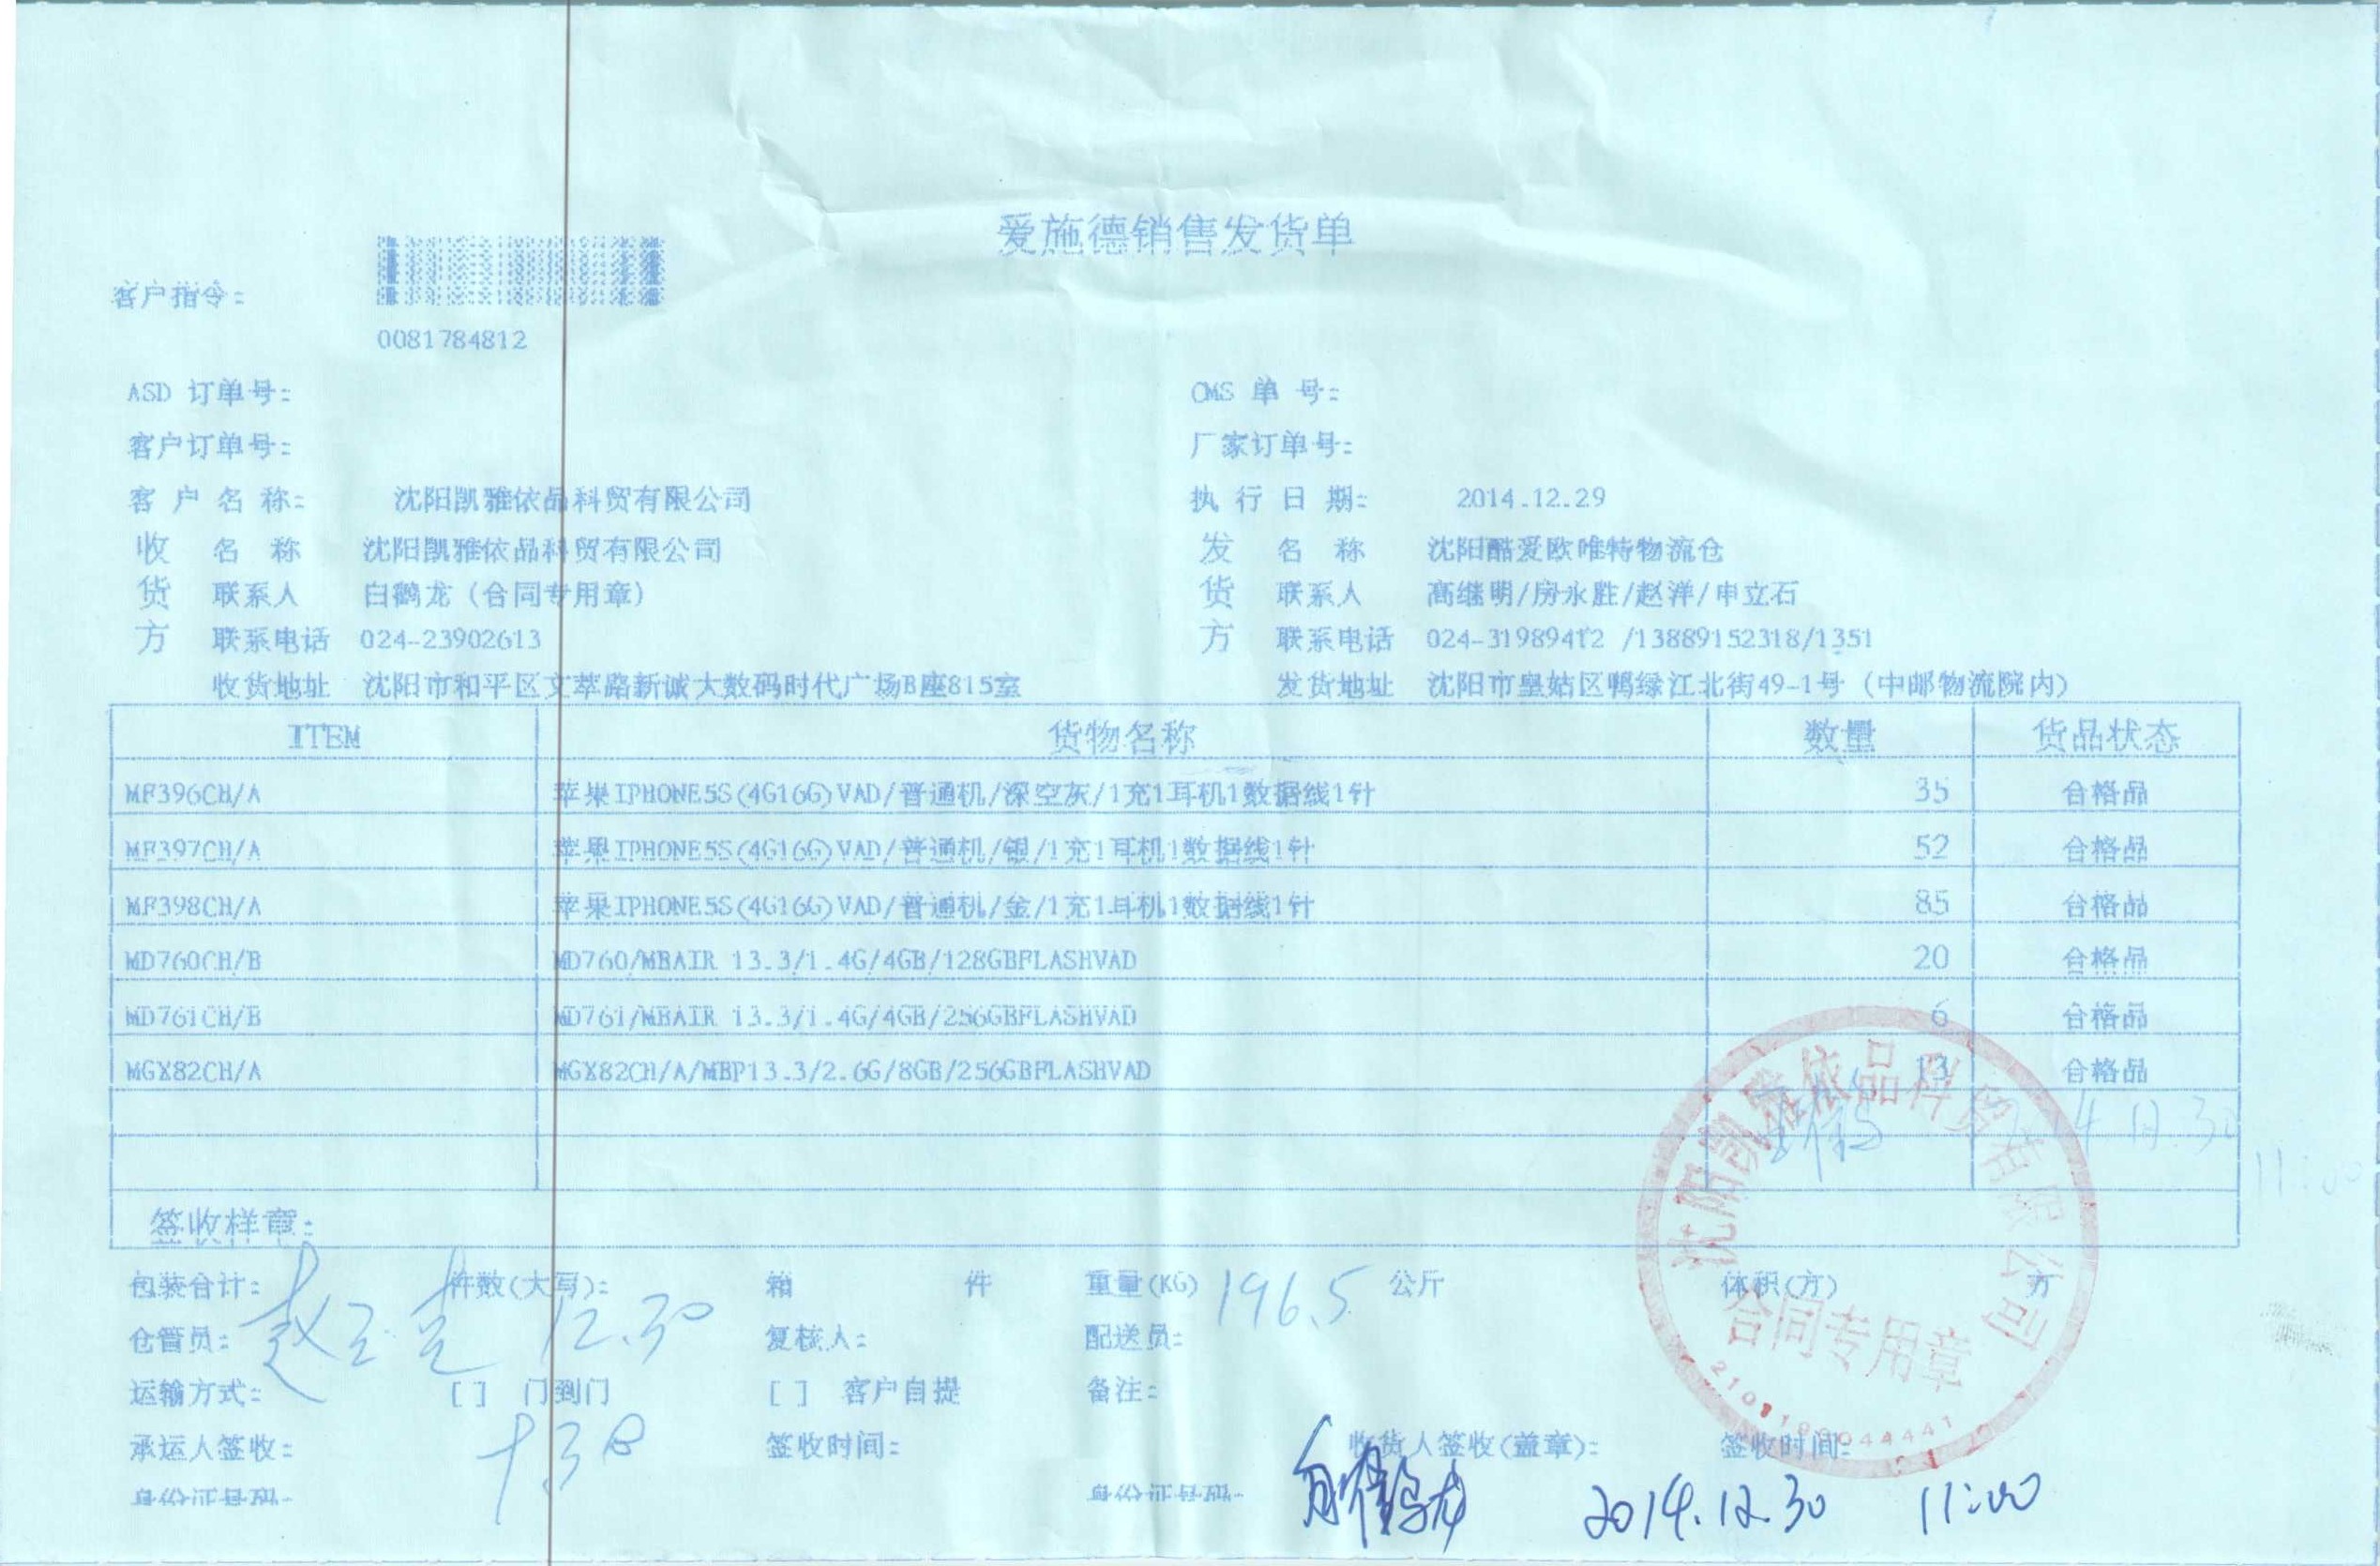 爱施德销售发货单
客户指令:
0081784812
ASD 订单号: OMS 单 号:
客户订单号: 厂家订单号:
客 户 名 称: 沈阳凯雅依品科贸有限公司 执 行 日 期: 2014.12.29
收 名 称 沈阳凯雅依品科贸有限公司 发 名 称 沈阳酷爱欧唯特物流仓
货 联系人 白鹳龙(合同专用章) 货 联系人 高继明/房永胜/赵洋/申立石
方 联系电话 024-23902613 方 联系电话 024-31989412 /13889152318/1351
收货地址 沈阳市和平区文萃路新诚大数码时代广场B座815室 发货地址 沈阳市皇姑区鸭绿江北街49-1号 (中邮物流院内)
ITEM 货物名称 数量 货品状态
MF396CH/A 苹果IPHONE5S(4G16G)VAD/普通机/深空灰/1充1耳机1数据线1针 35 合格品
MF397CH/A 苹果IPHONE5S(4G16G)VAD/普通机/银/1充1耳机1数据线1针 52 合格品
MF398CH/A 苹果IPHONE5S(4G16G)VAD/普通机/金/1充1耳机1数据线1针 85 合格品
MD760CH/B MD760/MBAIR 13.3/1.4G/4GB/128GBFLASHVAD 20 合格品
MD761CH/B MD761/MBAIR 13.3/1.4G/4GB/256GBFLASHVAD 6 合格品
MGX82CH/A MGX82CH/A/MBP13.3/2.6G/8GB/256GBFLASHVAD 13 合格品
沈阳凯雅依品科贸有限公司
11:00
签收样章:
包装合计: 件数(大写): 箱 件 重量(KG) 196.5 公斤 体积(方) 方
合同专用章
仓管员: 12.30 复核人: 配送员:
运输方式: [ ] 门到门 [ ] 客户自提 备注:
承运人签收: 签收时间: 收货人签收(盖章): 签收时间:
身份证号码: 身份证号码: 白鹳龙 2014.12.30 11:00